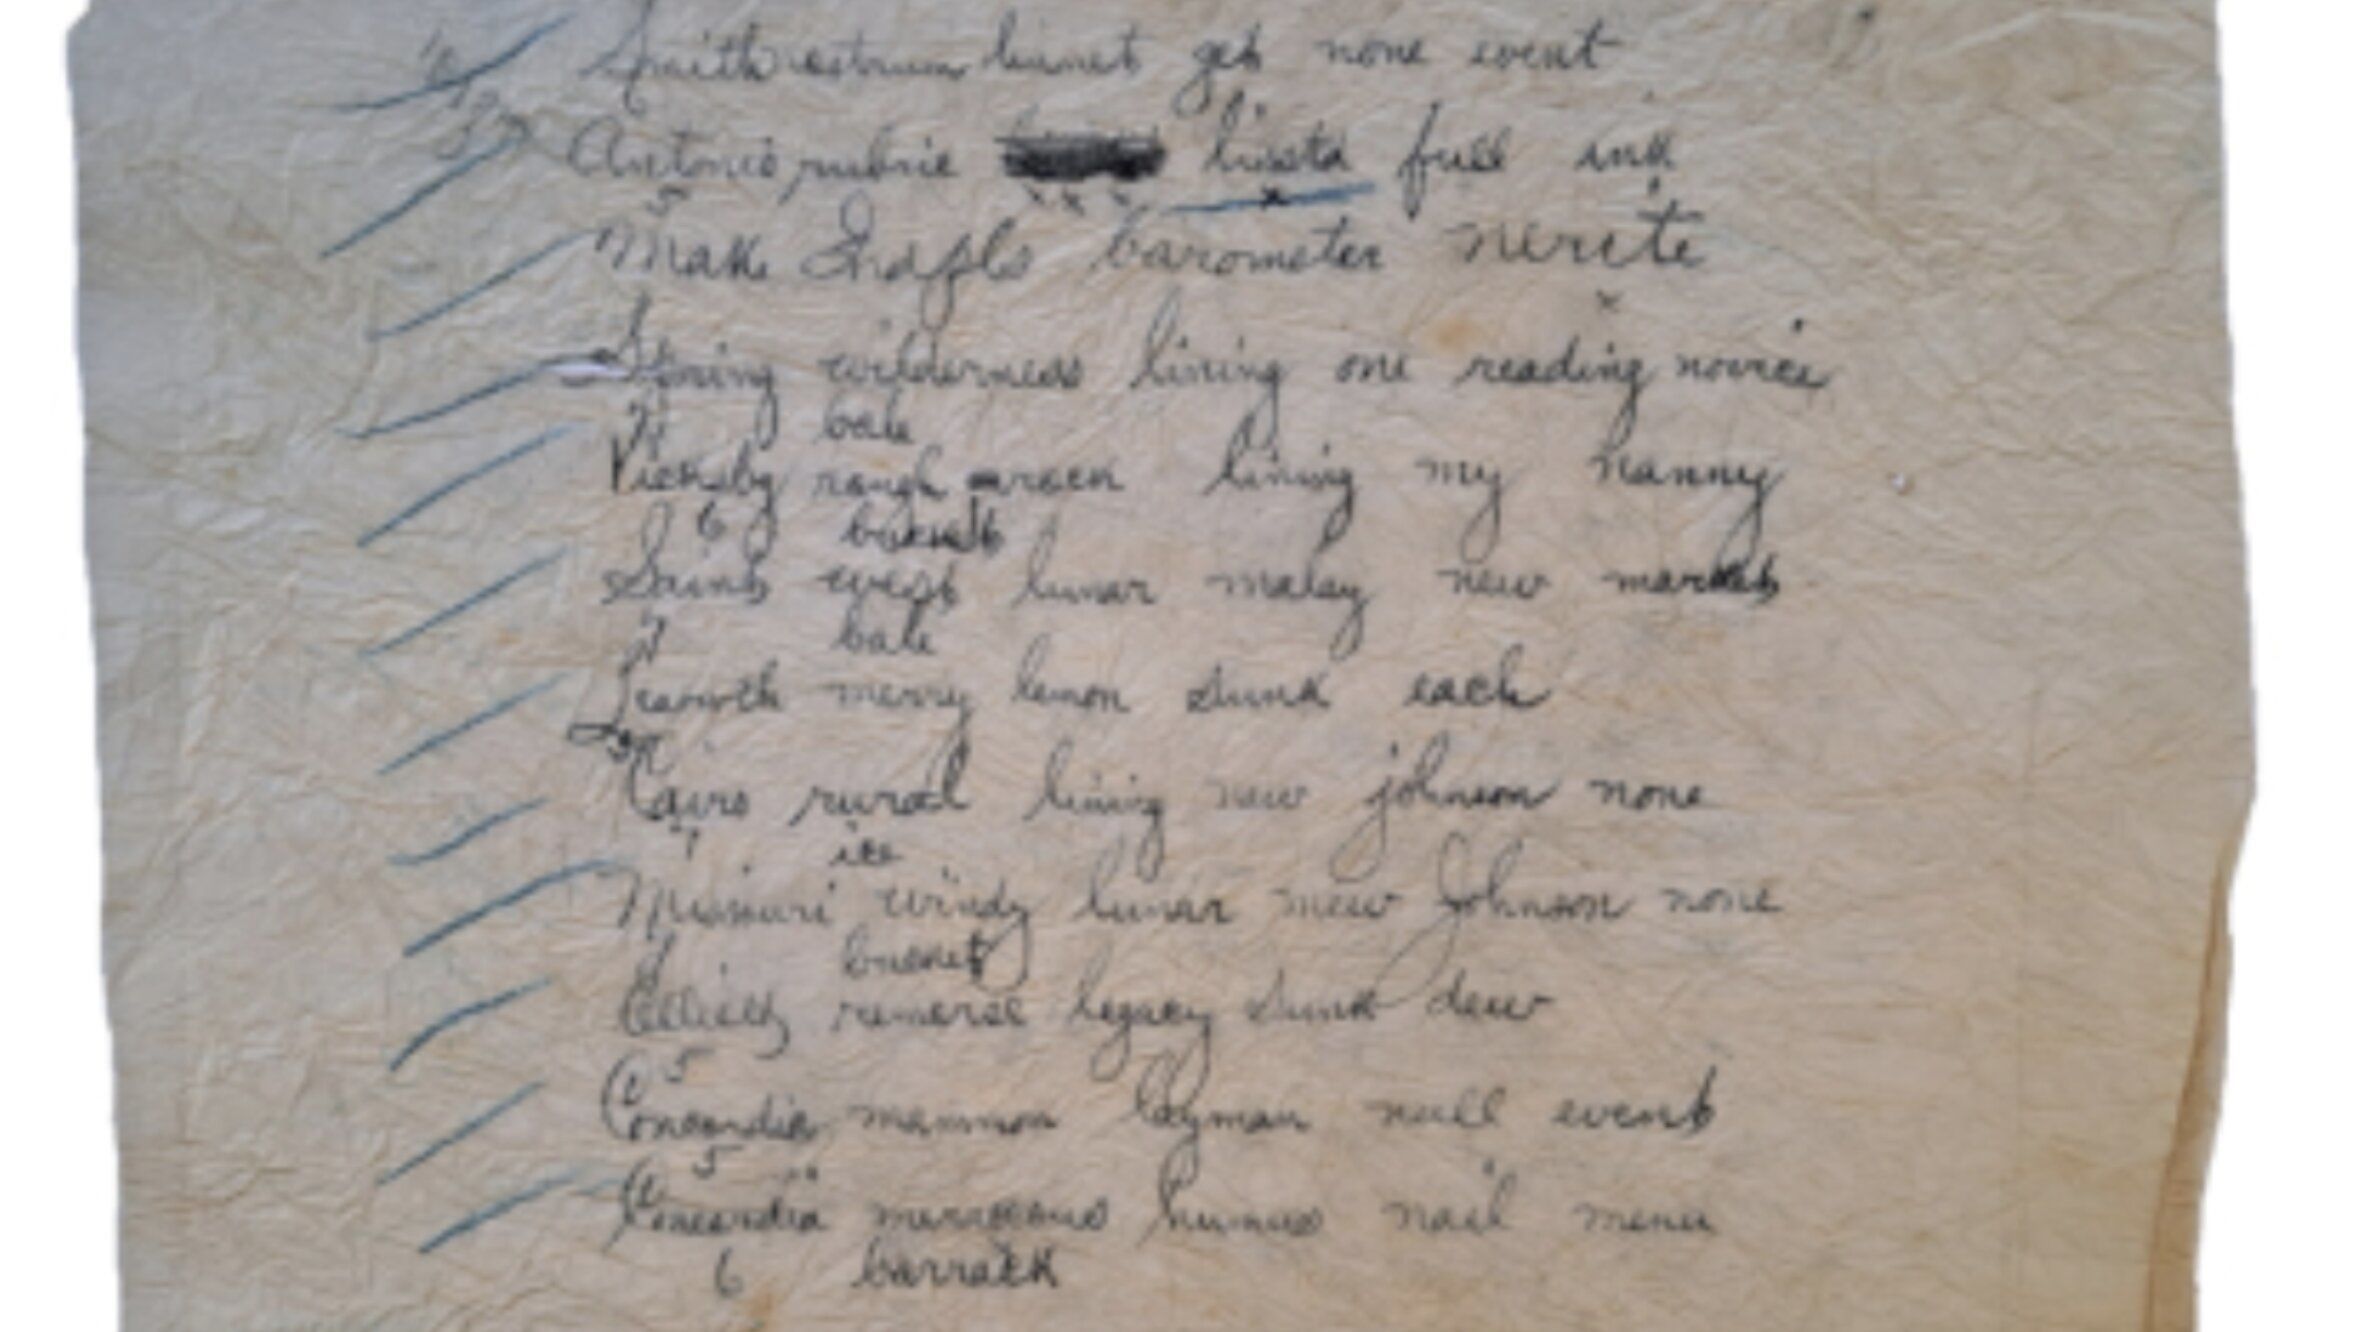 Smith rostrum linnet get none event
Antonio rubric full ink
5
Make Indpls barometer nerite
Spring wilderness lining one reading novice
bale
Vicksbg rough rack lining my nanny
6
Saint west lunar malay new market
7 bale
Leavwth merry lemon sunk each
Cairo rural lining new johnson none
ice
Missouri windy lunar mew Johnson none
Elliott legacy sunk dew
5
Concordia mammon layman null event
5
Concordia humus nail menu
6 barrack